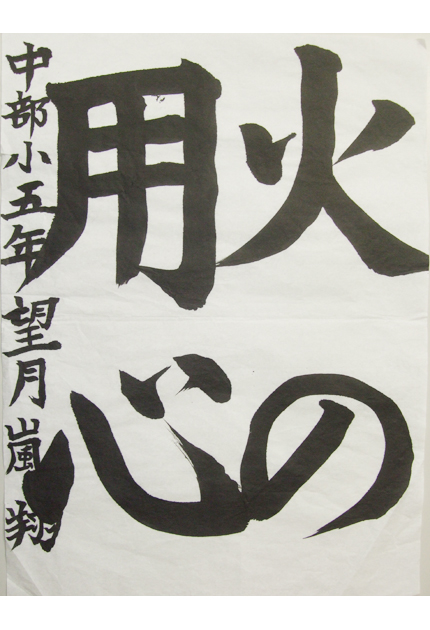 火の
用心
中部小五年望月嵐翔